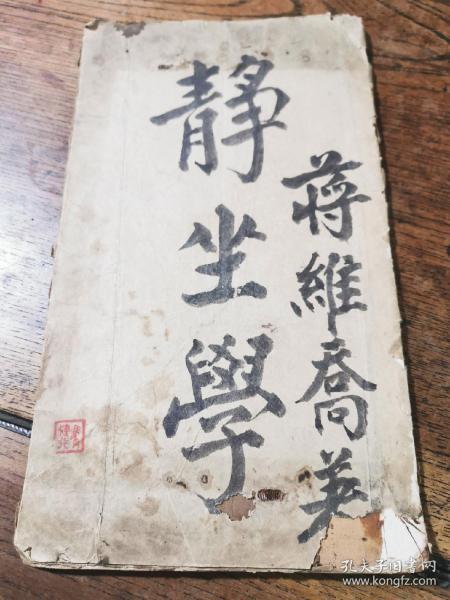 蔣維喬著
靜坐學
孔夫子旧书网
www.kongfz.com